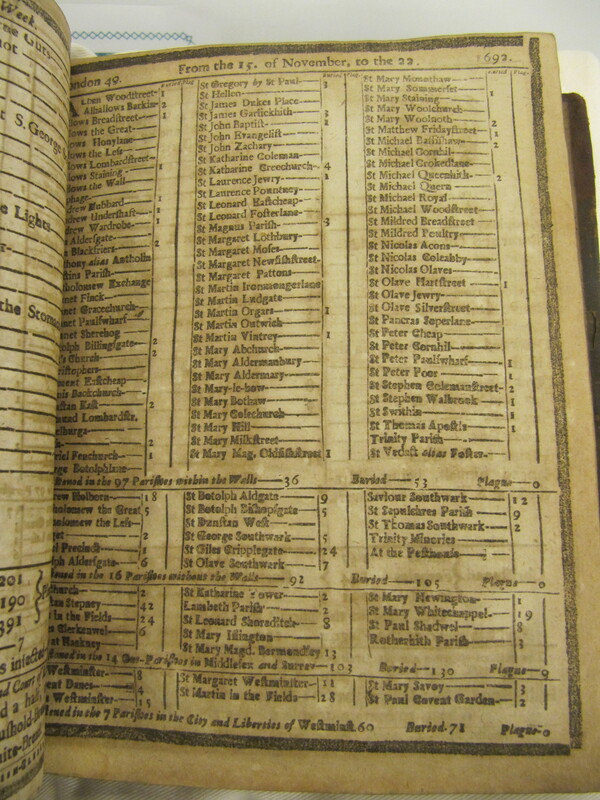 Week.
From the 15. of November, to the 22. 1692.
London 49.
Buried Plag.
Alban Woodstreet 1
Alhallows Barkin 2
lows Breadstreet 1
lows the Great
lows Honylane
lows the Less
lows Lombardstreet 1
lows Staining
lows the Wall
drew Hubbard 1
drew Undershaft 1
drew Wardrobe 1
Aldersgate 2
Blackfriers
thony alias Antholin
stins Parish
tholomew Exchange
net Finck
net Gracechurch
net Paulswharf
net Sherehog
tolph Billingsgate 2
s Church 2
ristophers
ment Eastcheap
nis Backchurch
nstan East 2
mund Lombardstr.
elburga
2
riel Fenchurch 1
rge Botolphlane
St Gregory by St Paul 3
St Hellen
St James Dukes Place
St James Garlickhith 3
St John Baptist 2
St John Evangelist
St John Zachary
St Katharine Coleman
St Katharine Creechurch 4
St Laurence Jewry 1
St Laurence Pountney
St Leonard Eastcheap
St Leonard Fosterlane
St Magnus Parish 3
St Margaret Lothbury
St Margaret Moses
St Margaret Newfishstreet
St Margaret Pattons
St Martin Ironmongerlane
St Martin Ludgate
St Martin Orgars 1
St Martin Outwich
St Martin Vintrey 1
St Mary Abchurch
St Mary Aldermanbury
St Mary Aldermary
St Mary-le-bow
St Mary Bothaw
St Mary Colechurch
St Mary Hill
St Mary Milkstreet
St Mary Mag. Oldfishstreet 1
St Mary Mounthaw
St Mary Sommerset 2
St Mary Staining
St Mary Woolchurch
St Mary Woolnoth 2
St Matthew Fridaystreet 1
St Michael Bassishaw 2
St Michael Cornhil
St Michael Crokedlane
St Michael Queenhith 2
St Michael Quern
St Michael Royal
St Michael Woodstreet
St Mildred Breadstreet 1
St Mildred Poultry
St Nicolas Acons
St Nicolas Coleabby
St Nicolas Olaves
St Olave Hartstreet 1
St Olave Jewry
St Olave Silverstreet
St Pancras Soperlane
St Peter Cheap
St Peter Cornhil
St Peter Paulswharf 1
St Peter Poor 1
St Stephen Colemanstreet 2
St Stephen Walbrook 1
St Swithin 1
St Thomas Apostls 1
Trinity Parish
St Vedast alias Foster
stened in the 97 Parishes within the Walls 36 Buried 53 Plague 0
rew Holborn 18
holomew the Great 5
holomew the Less
get 2
l Precinct 1
ph Aldersgate 6
St Botolph Aldgate 9
St Botolph Bishopsgate 5
St Dunstan West
St George Southwark 5
St Giles Cripplegate 24
St Olave Southwark 7
Saviour Southwark 12
St Sepulchres Parish 9
St Thomas Southwark 2
Trinity Minories
At the Pesthouse
stened in the 16 Parishes without the Walls 92 Buried 105 Plague 0
church 2
an Stepney 42
in the Fields 24
Clerkenwel 6
at Hackney
St Katharine Tower 2
Lambeth Parish 2
St Leonard Shoreditch 8
St Mary Islington
St Mary Magd. Bermondsey 13
St Mary Newington 1
St Mary Whitechappel 19
St Paul Shadwel 8
Rotherhith Parish 3
stened in the 14 Out-Parishes in Middlesex and Surrey 103 Buried 130 Plague 0
Westminster 8
ent Danes 4
s Westminster 15
St Margaret Westminster 11
St Martin in the Fields 28
St Mary Savoy 3
St Paul Covent Garden 2
stened in the 7 Parishes in the City and Liberties of Westminst. 60 Buried 71 Plague 0